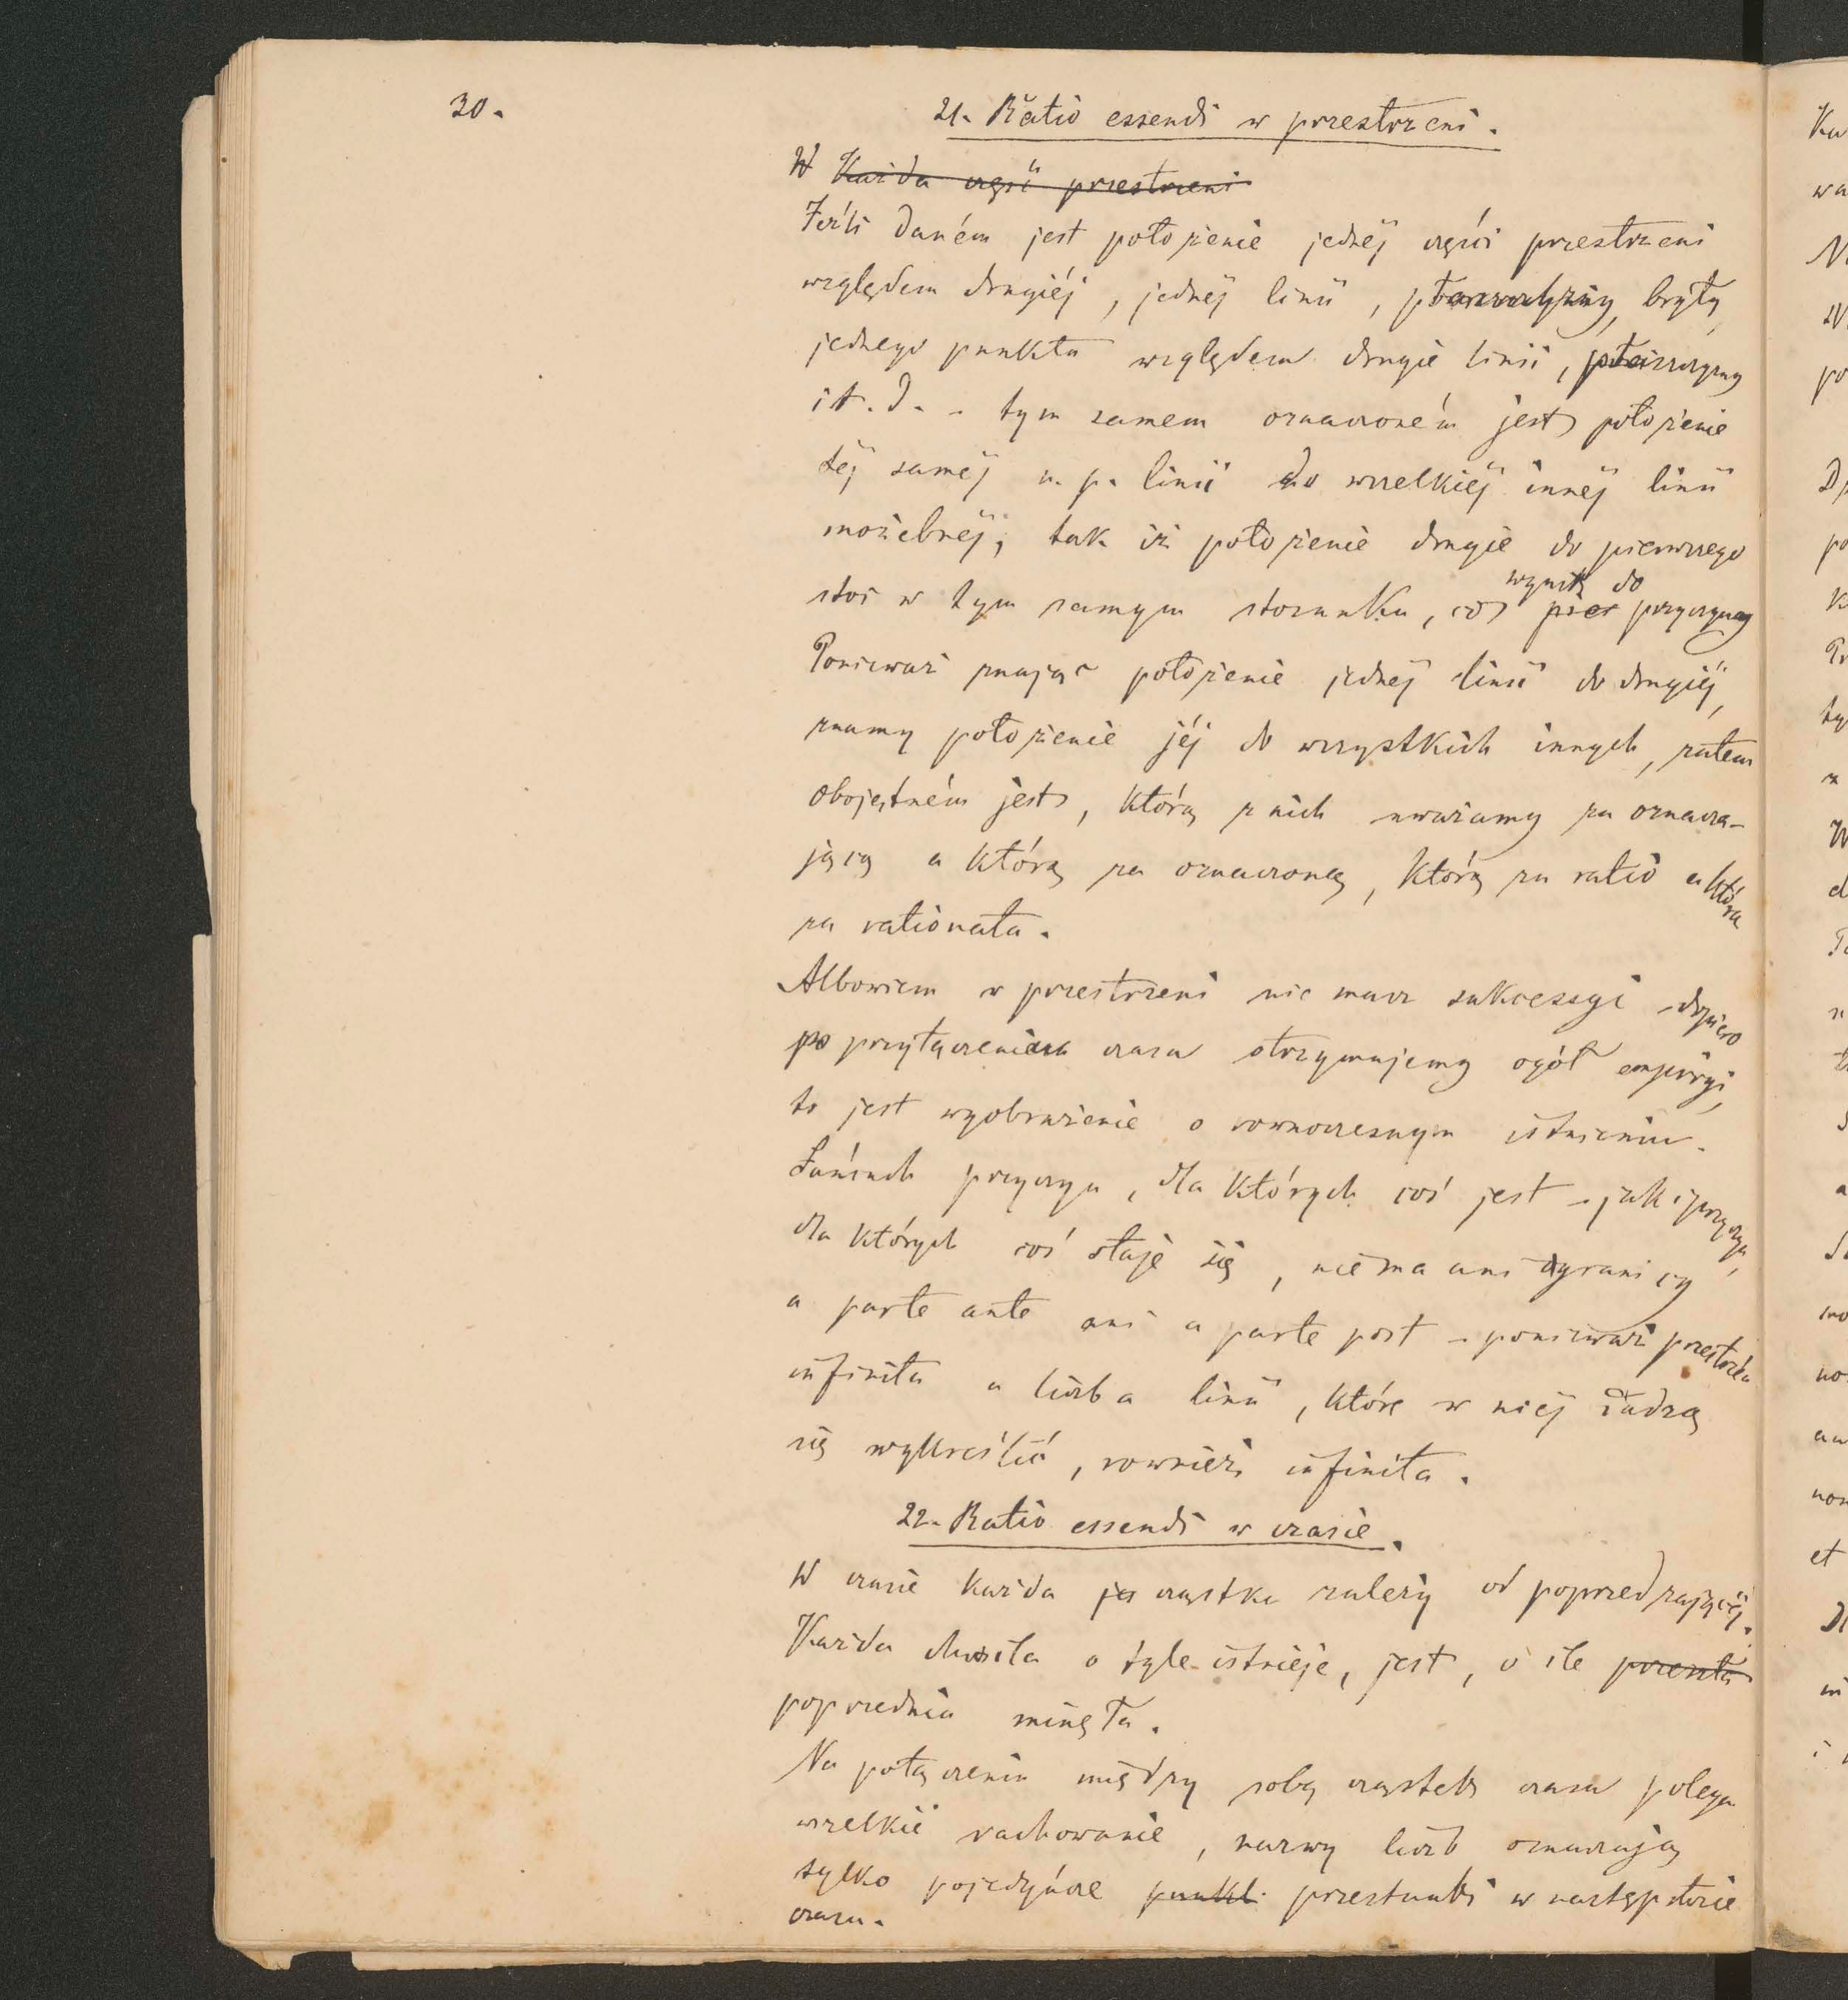 30.
21. Ratio essendi w przestrzeni.
W Każda część przestrzeni
Jeśli daném jest położenie jednéj części przestrzeni
względem drugiéj, jednéj linii, płaszczyzny, bryły,
jednego punktu względem drugié linii, płaszczyzny
i t. d. - tym samem oznaczoném jest położenie
téj saméj n. p. linii do wszelkiéj innéj linii
możebnéj, tak iż położenie drugie do pierwszego
stoi w tym samym stosunku, co
wynik do
przez przyczyny
Ponieważ znając położenie jednéj linii do drugiéj,
znamy położenie jéj do wszystkich innych, zatem
obojętném jest, którą z nich uważamy za oznacza-
jącą a którą za oznaczoną, którą za ratio a która
za rationata.
Albowiem w przestrzeni nie masz sukcessyi - dopiero
po przyłączeniu czasu otrzymujemy ogół empiryi,
to jest wyobrażenie o rownoczesnym istnieniu.
Łańcuch przyczyn, dla których coś jest - jak i przyczyn,
dla których coś staje się, nie ma ani granicy
a parte ante ani a parte post - ponieważ przestrzeń
infinita a liczba linii, które w niéj dadzą
się wykreślić, rownież infinita.
22. Ratio essendi w czasie.
W czasie każda jes cząstka zależy od poprzedzającéj.
Każda chwila o tyle istnieje, jest, o ile przeszła
poprzednia minęła.
Na połączeniu między sobą cząstek czasu polega
wszelkie rachowanie, nazwy liczb oznaczają
tylko pojedyńcze punkt przestanki w następstwie
czasu.